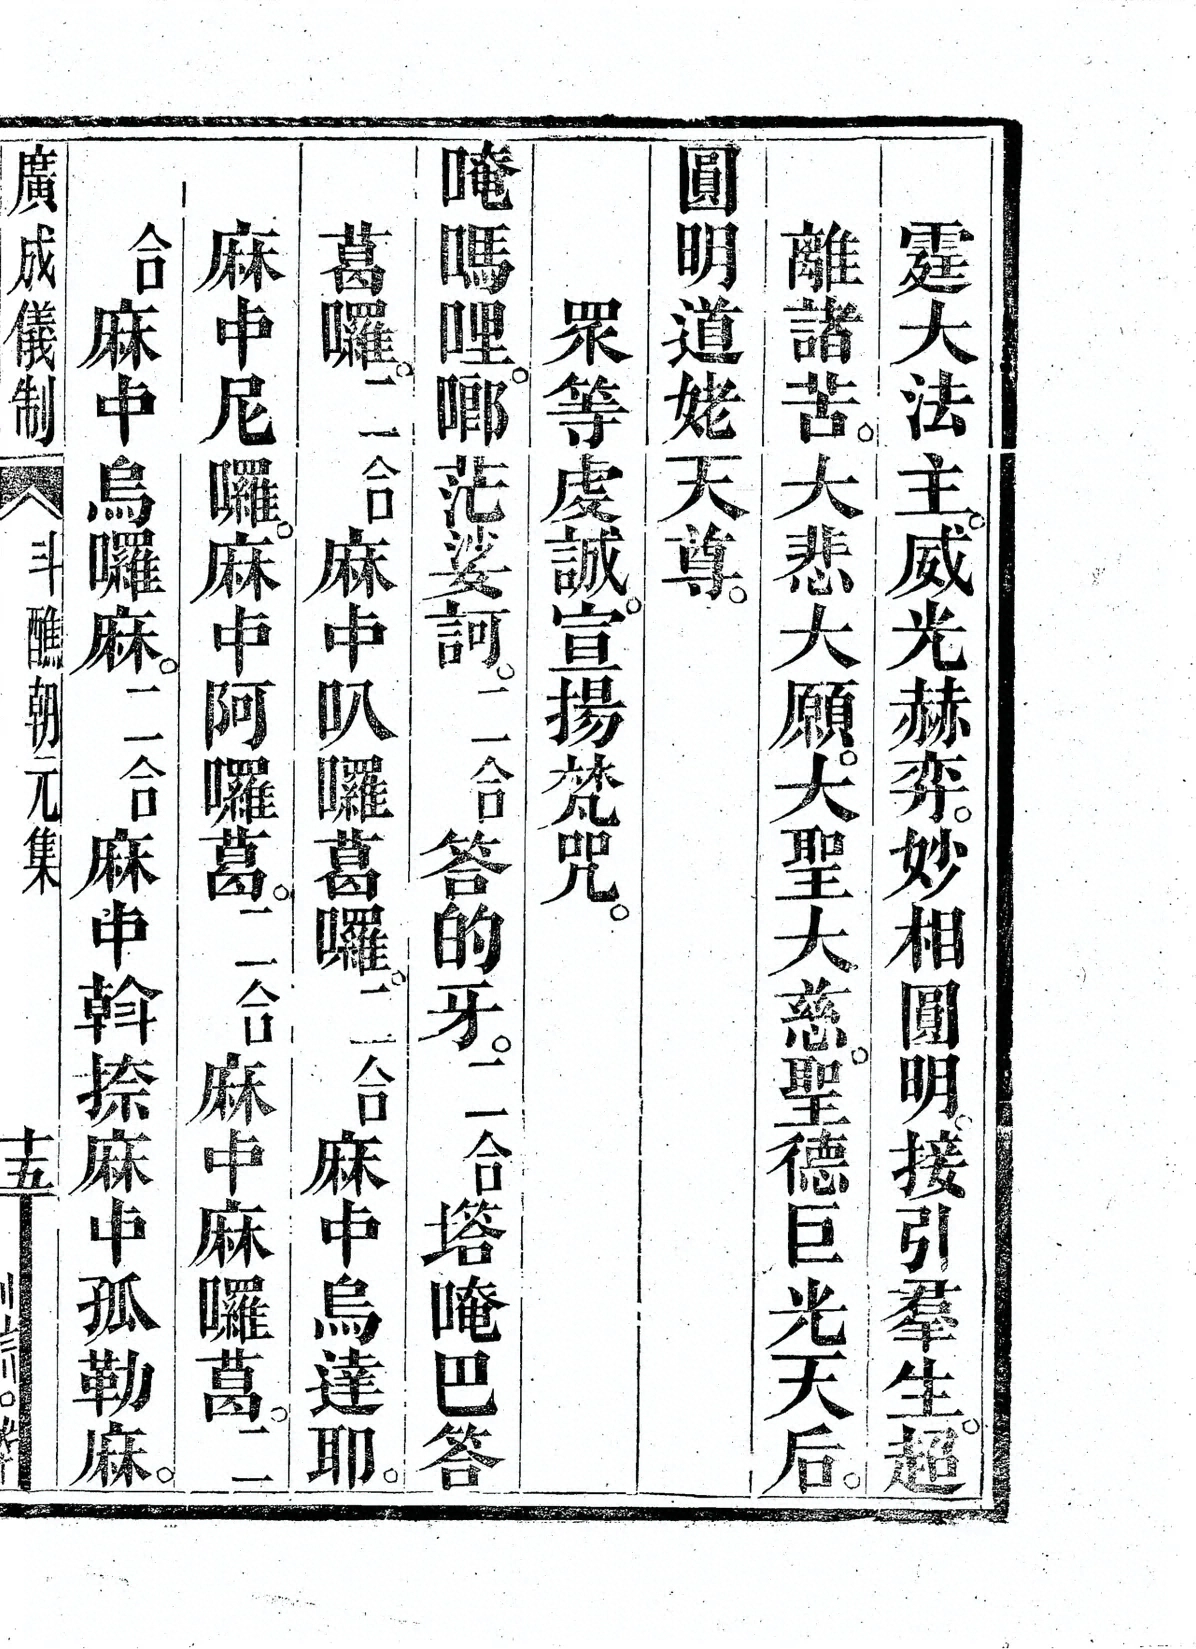 霆大法主。威光赫弈。妙相圓明。接引羣生。超
離諸苦。大悲大願。大聖大慈。聖德巨光天后。
圓明道姥天尊。
眾等虔誠。宣揚梵咒。
唵嗎哩。啷茫娑訶。二合答的牙。二合塔唵巴答
葛囉。二合麻中叭囉葛囉。二合麻中烏達耶。
麻中尼囉。麻中阿囉葛。二合麻中麻囉葛。二
合麻中烏囉麻。二合麻中斡捺麻中孤勒麻。
廣成儀制 斗醮朝元集 十五